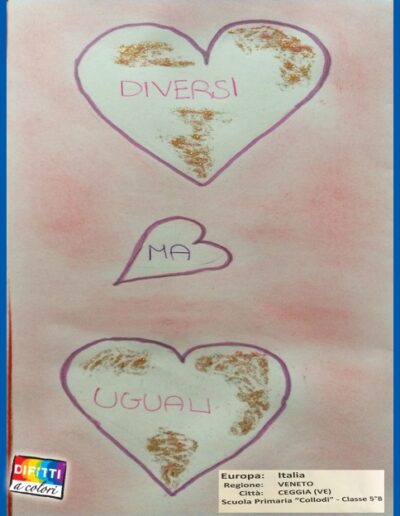 DIVERSI
MA
UGUALI
DIRITTI
a colori
Europa: Italia
Regione: VENETO
Città: CEGGIA (VE)
Scuola Primaria "Collodi" - Classe 5^B